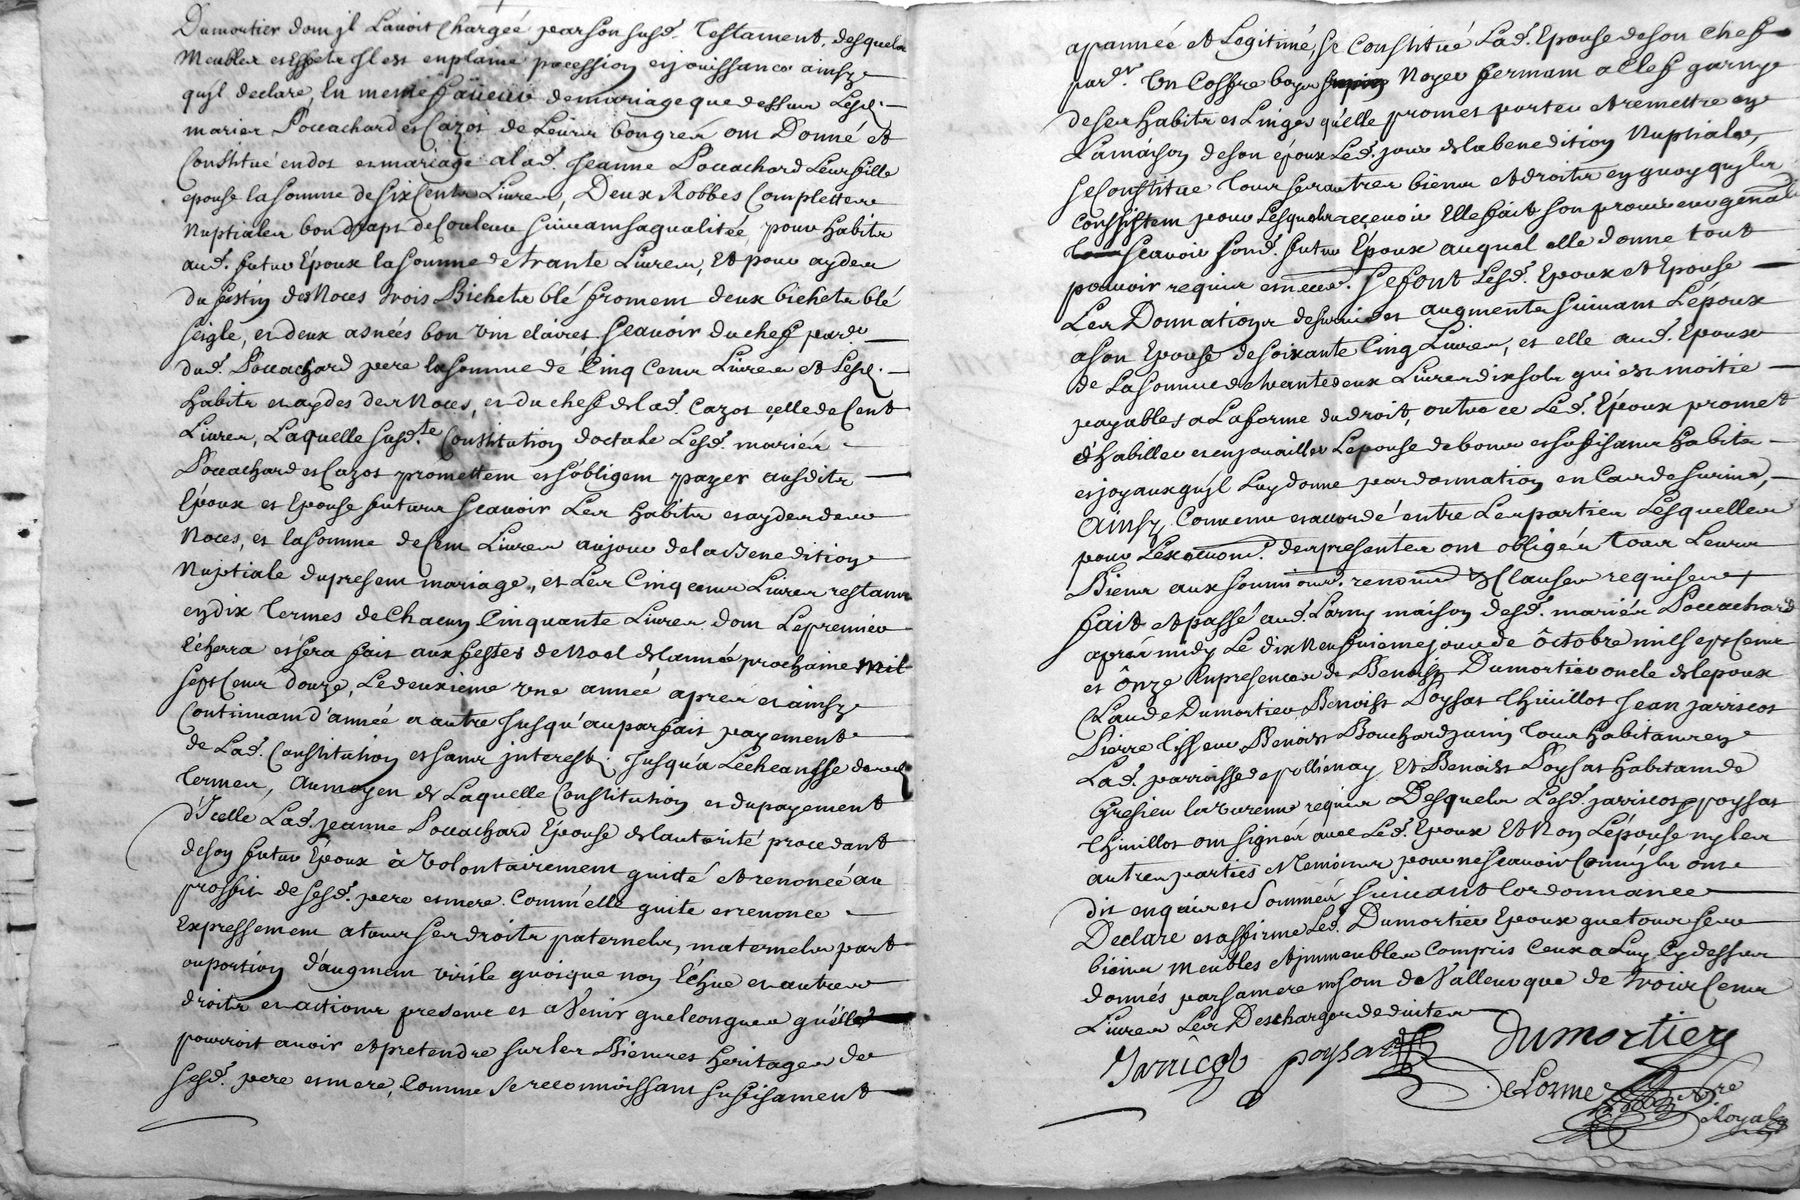 Dumortier dont jl L'avoit Chargée par son susd. Testament, desquels
Meubles et Effets jl est en plaine pocession et jouissance ainsy
qu'jl declare, En meme faueur de mariage que dessus Lesd.
mariez Pouachard et Cazot de Leurs bongrez ont Donné et
Constitué en dot et mariage a lad. Jeanne Pouachard Leur fille
epouse la somme de six Cents Liures, Deux Robbes Complettes
Nuptiales bon draps de Couleur suiuant sa qualitée, pour habits
aud. futur Epoux la somme de trante Liures, Et pour ayder
du festin des Noces trois Bichets blé froment deux bichets blé
seigle, et deux asnées bon vin clairet, scauoir du chef par.er
dud. Pouachard pere la somme de Cinq Cents Liures et Lesd.
habits et aydes des Noces, et du chef de lad. Cazot celle de Cent
Liures, Laquelle susd.te Constitution dotale Lesd. mariez
Pouachard et Cazot promettent et s'obligent payer ausdits
Epoux et Epouse futurs scauoir Les habits et aydes des
Noces, et la somme de Cent Liures au jour de la Benediction
Nuptiale du present mariage, et Les Cinq cents Liures restant
en dix termes de Chacun Cinquante Liures dont Le premier
Echerra et sera fait aux festes de Noel de l'année prochaine mil
sept Cents douze, Le deuxieme vne année apres et ainsy
Continuant d'année en autre Jusqu'au parfait payement
de Lad. Constitution et sans jnterest Jusqu'a L'echeansse desd.
termes, Au moyen de Laquelle Constitution et du payement
d'Icelle Lad. Jeanne Pouachard Epouse de l'autorité procedant
de son futur Epoux à volontairement quité et renoncé au
proffit de sesd. pere et mere Comm'elle quite et renonce
Expressement a tous ses droits paternels, maternels part
ou portion d'augment virile quoique non Echue et autres
droits et actions presents et a Venir quelconques qu'elle
pourroit auoir et pretendre sur les Biens et heritages de
sesd. pere et mere, Comme se reconnoissant suffisament
apannée et Legitimé, Se Constitué Lad. Epouse de son chef
par.er Un Coffre boyer Noyer fermant a Clef garnye
de ses habits et Linges qu'elle promet porter et remettre en
La maison de son époux Led. jour de la benediction Nuptiale,
se Constitue tous ses autres biens et droits en quoy qu'jls
Consistent pour Lesquels receuoir Elle fait son procureur general
scauoir sond. futur Epoux auquel elle donne tout
pouvoir requis et necess. se font Lesd. Epoux et Epouse
Les Donnations de suruie et augments suiuant L'époux
a son Epouse de soixante Cinq Liures, et elle aud. Epoux
de La somme de trante deux Liures dix sols qui est moitié
payables a La forme du droit, outre ce Led. Epoux promet
d'habiller et enjouailler L'epouse de bons et suffisans habits
et joyaux qu'jl Luy donne par donnation en Cas de suruie,
Ainsy Conuenu et accordé entre Les parties Lesquelles
pour L'execution des presentes ont obligéz tous Leurs
Biens aux soumissions, renonc. & Clauses requises
fait et passé aud. Larny maison desd. mariéz Pouachard
apres midy Le dix neufuieme jour de Octobre mil sept Cents
et Onze En presences de Benoist Dumortier oncle de l'epoux
Claude Dumortier, Benoist Poysat Thiuillot Jean jarricot
Pierre tisseur Benoist Bouchard, tous habitans en
La d. parroisse de pollienay Et Benoist Poysat habitant de
Gresieu la varenne requis Desquels Lesd. jarricot & poysat
Thiuillot ont signez auec Led. Epoux Et Non L'épouse ny les
autres parties et temoins pour ne scauoir Comm'jls ont
dit enquis et Sommez suiuant L'ordonnance
Declare et affirme Led. Dumortier Epoux que tous ses
biens meubles et jmmeubles Compris Ceux a Luy Cy dessus
donnés par sa mere ne sont de Valleur que de trois Cents
Liures Les Descharges deduittes
Jarricot poysat Dumortier
Delorme N.re
Royal